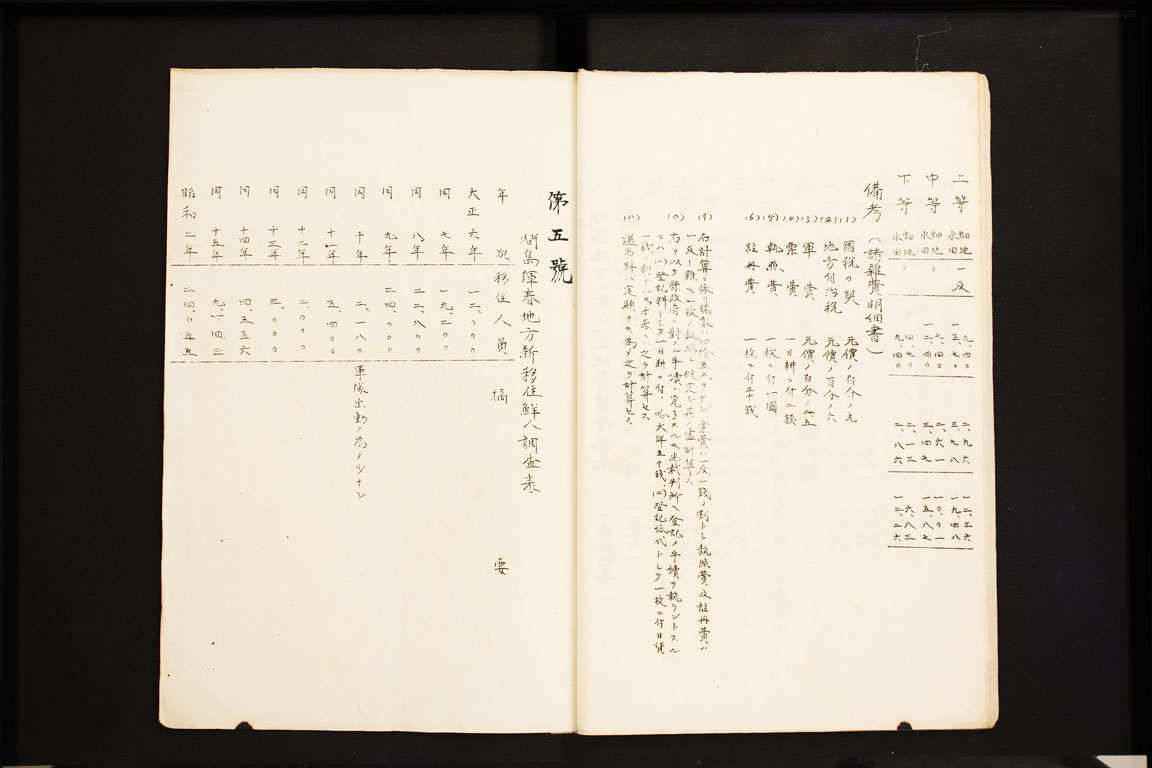 上等 畑地 一反 九、四〇 二、九六 一二、三六
水田 一五、七〇 三、七八 一九、四八
中等 畑地 〃 七、四〇 二、六一 一〇、〇一
水田 一二、四〇 三、四七 一五、八七
下等 畑地 〃 四、七〇 二、一三 六、八三
水田 九、四〇 二、八六 一二、二六
備考（諸雑費明細書）
(1) 國税々契 元價ノ百分ノ九
(2) 地方自治税 元價ノ百分ノ六
(3) 軍費 元價ノ百分ノ二、五
(4) 票費 一日耕ニ付二錢
(5) 執照費 一枚ニ付一圓
(6) 註冊費 一枚ニ付五十錢
(イ) 右計算ニ依リ端数ハ四捨五入ヲナシ票費ハ一反一錢ノ割トシ執照費及註冊費ハ
一反ト雖モ一枚ノ執照ト假定シ其ノ儘計算ス
(ロ) 右ヲ以テ縣政府ニ對スル手續ハ完了スルモ尚裁判所ヘ登記ノ手續ヲ執ラントスル
ニハ(一)登記料トシテ一日耕ニ付、哈大洋五十錢、(二)登記紙代トシテ一枚ニ付日貨
一錢ノ割
(ハ) 過名料ハ定額ナキ為メ之ヲ計算セス
第五號
間島琿春地方新移住鮮人調査表
年次 移住人員 摘要
大正六年 一二、〇〇〇
同 七年 一九、二〇〇
同 八年 二二、八〇〇
同 九年 二四、〇〇〇
同 十年 二、一八〇 軍隊出動ノ為メ少ナシ
同 十一年 五、四〇〇
同 十二年 二、〇〇〇
同 十三年 三、〇〇〇
同 十四年 四、五五六
同 十五年 九、一四三
昭和二年 二四、〇五五